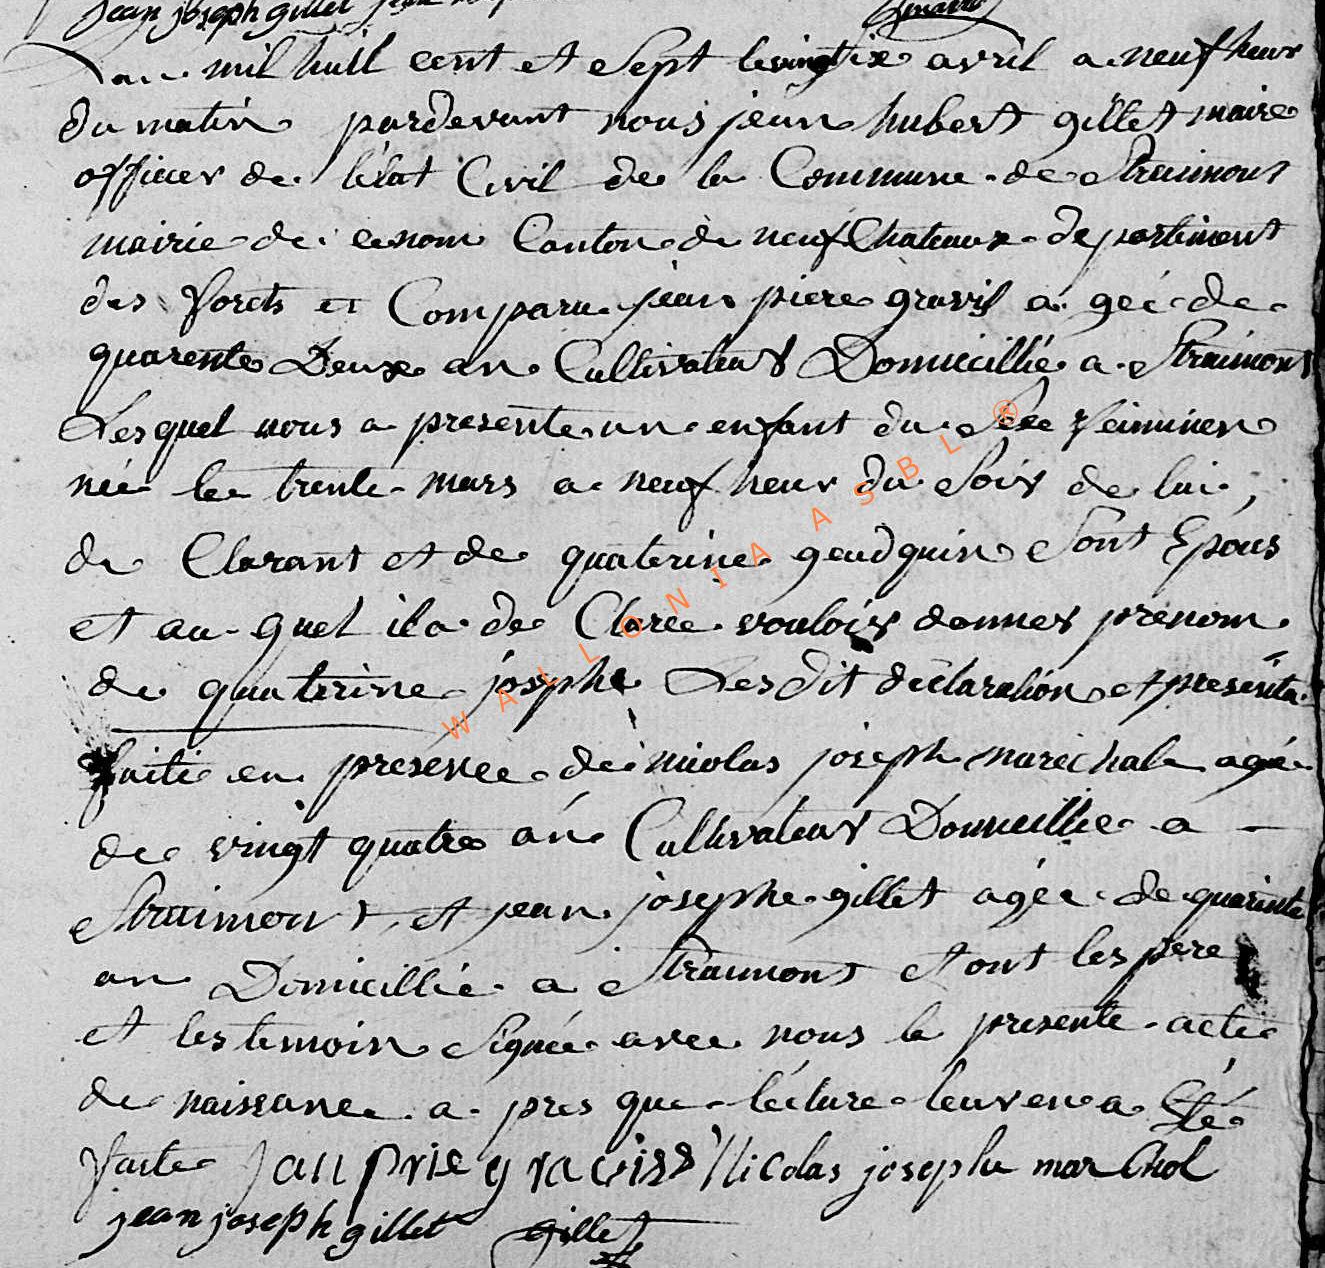 jean joseph gillet
an mil huit cent et Sept le avril a neuf heur
du matin pardevant nous jean hubert gillet maire
officier de létat Civil de la Commune de Straimont
mairie de ce nom Canton de neufChateaux departement
des forets et Comparu jean piere gravis a geé de
quarente Deux an Cultivateur Domicillié a Straimont
Lesquel nous a presente un enfant du Sexe feiminen
neé le trente mars a neuf heur du Soir de lui
de Clarant et de quaterine goudquin Sont Epous
et au quel il a de Claree vouloir donner prenom
de quaterine josephe Lesdit déclaration et présenta
faite en présence de nicolas joseph marechale ageé
de vingt quatre an Cultivateur Domicillie a
Straimont et jean josephe gillet ageé de quarente
an Domicillié a Straimont et ont les pere
et les temoin Signée avec nous le presente acte
de naissance a pres que lecture leur en a Eté
faite jan prie gravisse Nicolas joseph marchal
jean joseph gillet gillet
WALLONIA ASBL ®